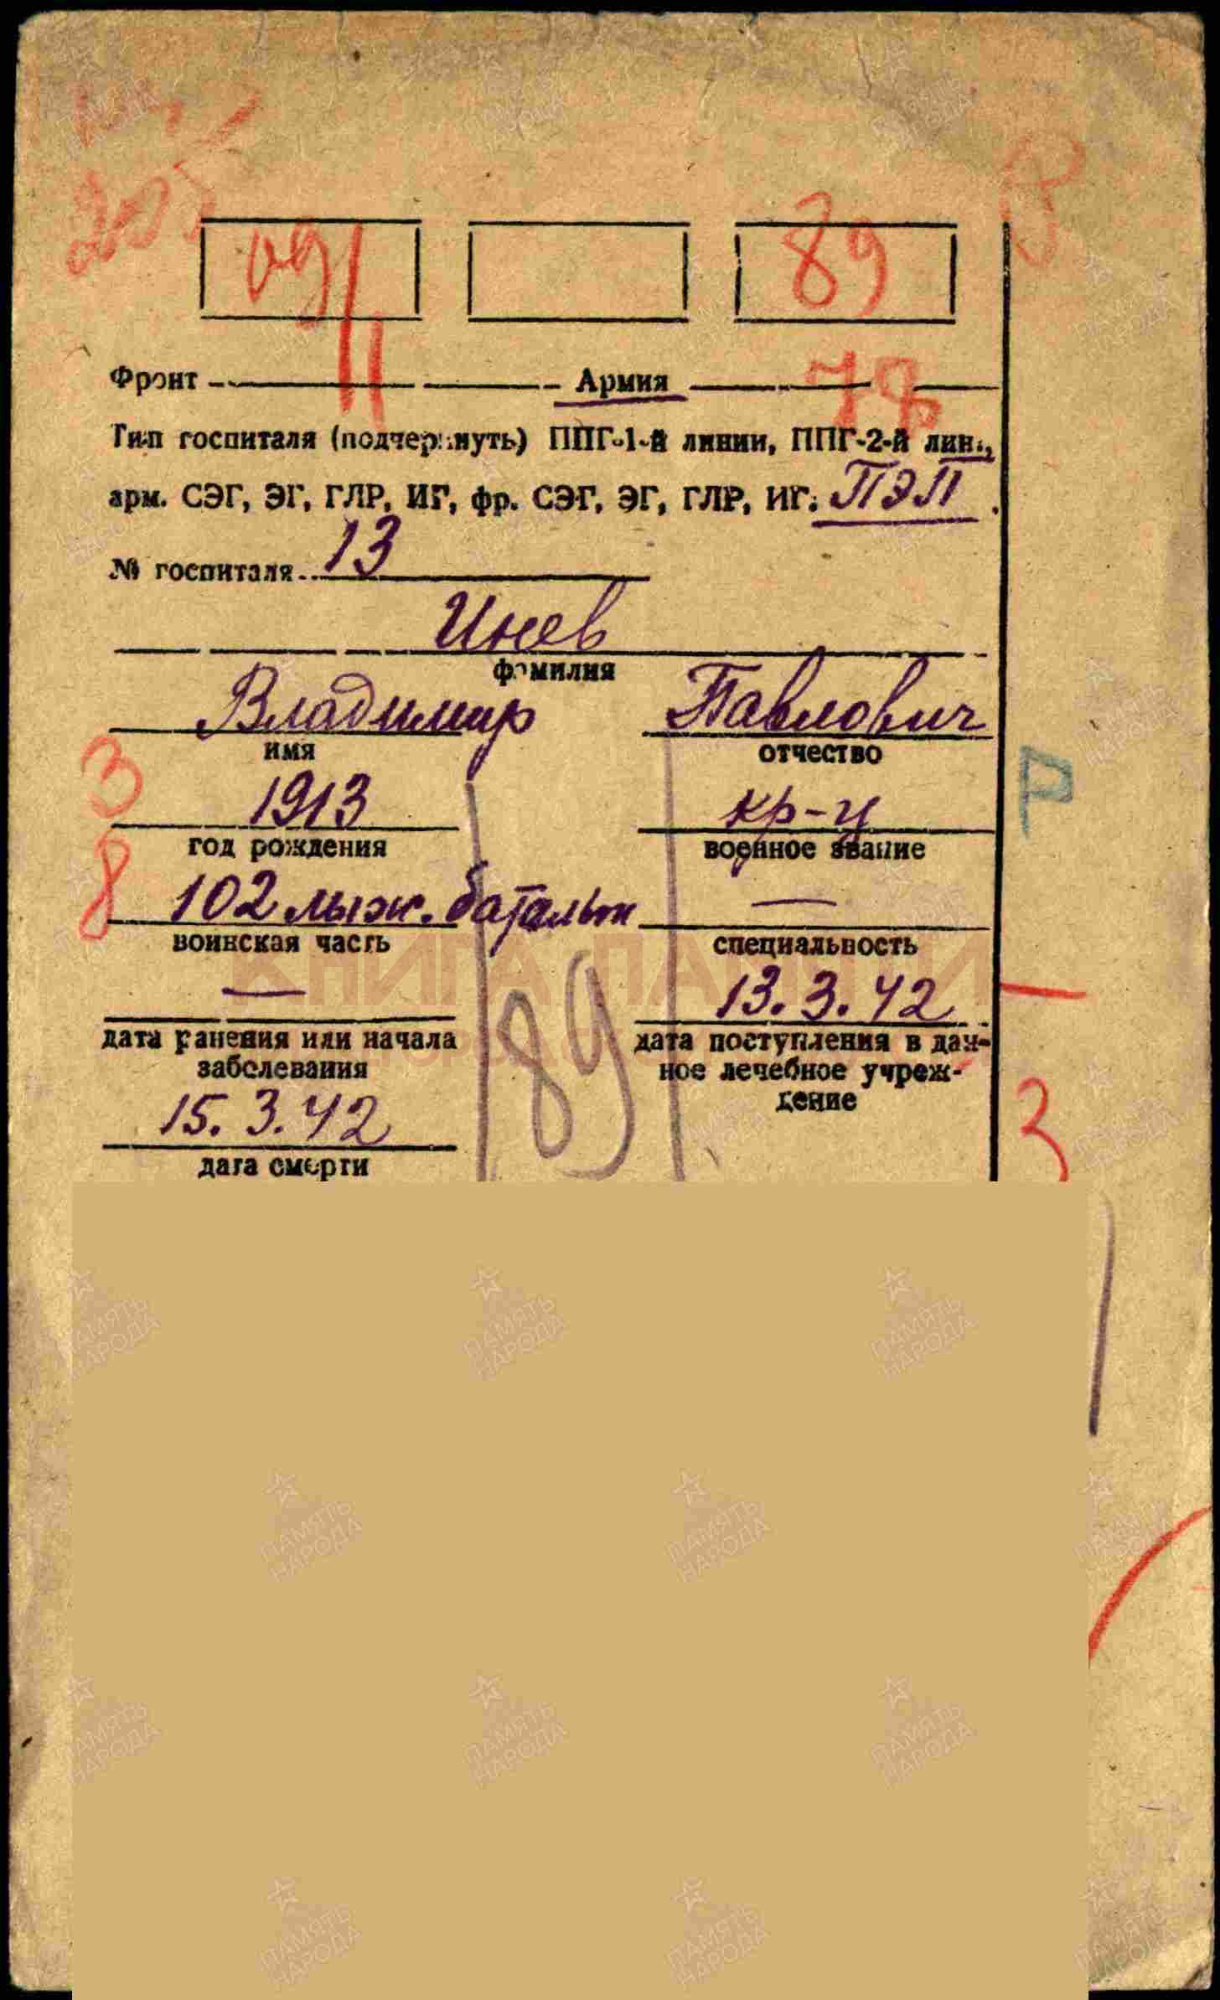 89
Фронт Армия
78
Тип госпиталя (подчеркнуть) ППГ-1-й линии, ППГ-2-й лин.,
арм. СЭГ, ЭГ, ГЛР, ИГ, фр. СЭГ, ЭГ, ГЛР, ИГ. ПЭП
№ госпиталя 13
Инев
фамилия
Владимир Павлович
имя отчество
3
1913 кр-ц
год рождения военное звание
Р
8
102 лыж. батальон —
воинская часть специальность
КНИГА ПАМЯТИ
— 13.3.42
дата ранения или начала дата поступления в дан-
заболевания ное лечебное учреж-
дение
89
15.3.42
дата смерти
3
ПАМЯТЬ
НАРОДА